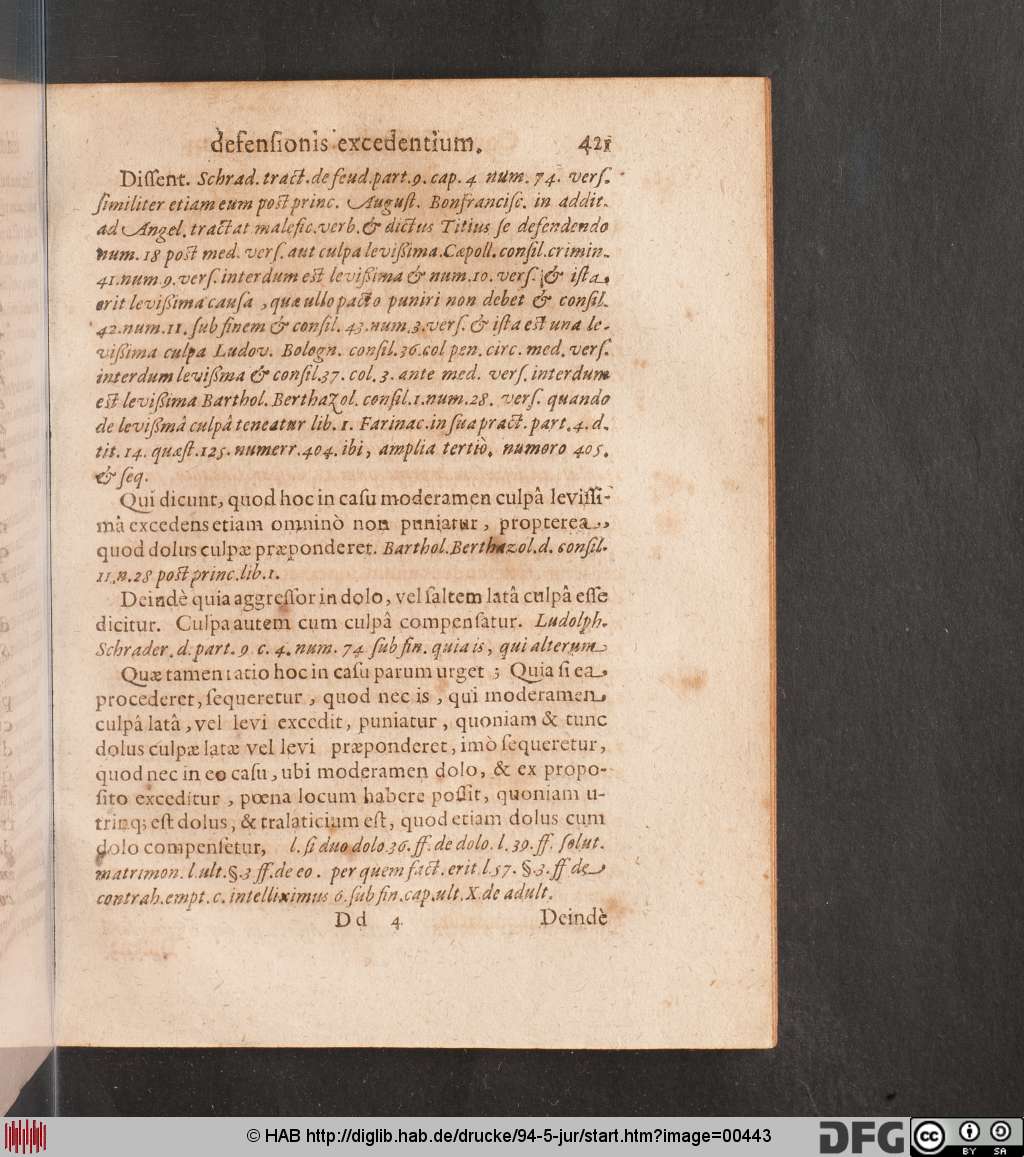 defensionis excedentium. 421
Dissent. Schrad. tract. de feud. part. 9. cap. 4 num. 74. vers.
similiter etiam eum post princ. August. Bonfrancisc. in addit.
ad Angel. tractat malefic. verb. & dictus Titius se defendendo
num. 18 post med. vers. aut culpa levißima. Cæpoll. consil. crimin.
41. num 9. vers. interdum est levißima & num. 10. vers. & ista
erit levißima causa, quæ ullo pacto puniri non debet & consil.
42. num. 11. sub finem & consil. 43. num. 3. vers. & ista est una le-
vißima culpa Ludov. Bologn. consil. 36. col pen. circ. med. vers.
interdum levißma & consil. 37. col. 3. ante med. vers. interdum
est levißima Barthol. Berthazol. consil. 1. num. 28. vers. quando
de levißmâ culpâ teneatur lib. 1. Farinac. in sua pract. part. 4. d.
tit. 14. quæst. 125. numerr. 404. ibi, amplia tertiò, numero 405.
& seq.
Qui dicunt, quod hoc in casu moderamen culpâ levissi-
mâ excedens etiam omninò non puniatur, propterea,
quod dolus culpæ præponderet. Barthol. Berthazol. d. consil.
11. n. 28 post princ. lib. 1.
Deindè quia aggressor in dolo, vel saltem latâ culpâ esse
dicitur. Culpa autem cum culpâ compensatur. Ludolph.
Schrader. d. part. 9 c. 4. num. 74 sub fin. quia is, qui alterum
Quæ tamen ratio hoc in casu parum urget; Quia si ea
procederet, sequeretur, quod nec is, qui moderamen
culpâ latâ, vel levi excedit, puniatur, quoniam & tunc
dolus culpæ latæ vel levi præponderet, imò sequeretur,
quod nec in eo casu, ubi moderamen dolo, & ex propo-
sito exceditur, pœna locum habere possit, quoniam u-
trinq; est dolus, & tralaticium est, quod etiam dolus cum
dolo compensetur, l. si duo dolo. 36. ff. de dolo. l. 39. ff. solut.
matrimon. l. ult. §. 3 ff. de eo. per quem fact. erit l. 57. §. 3. ff de
contrah. empt. c. intelliximus 6. sub fin. cap. ult. X. de adult.
Dd 4 Deindè
© HAB http://diglib.hab.de/drucke/94-5-jur/start.htm?image=00443
DFG cc BY SA